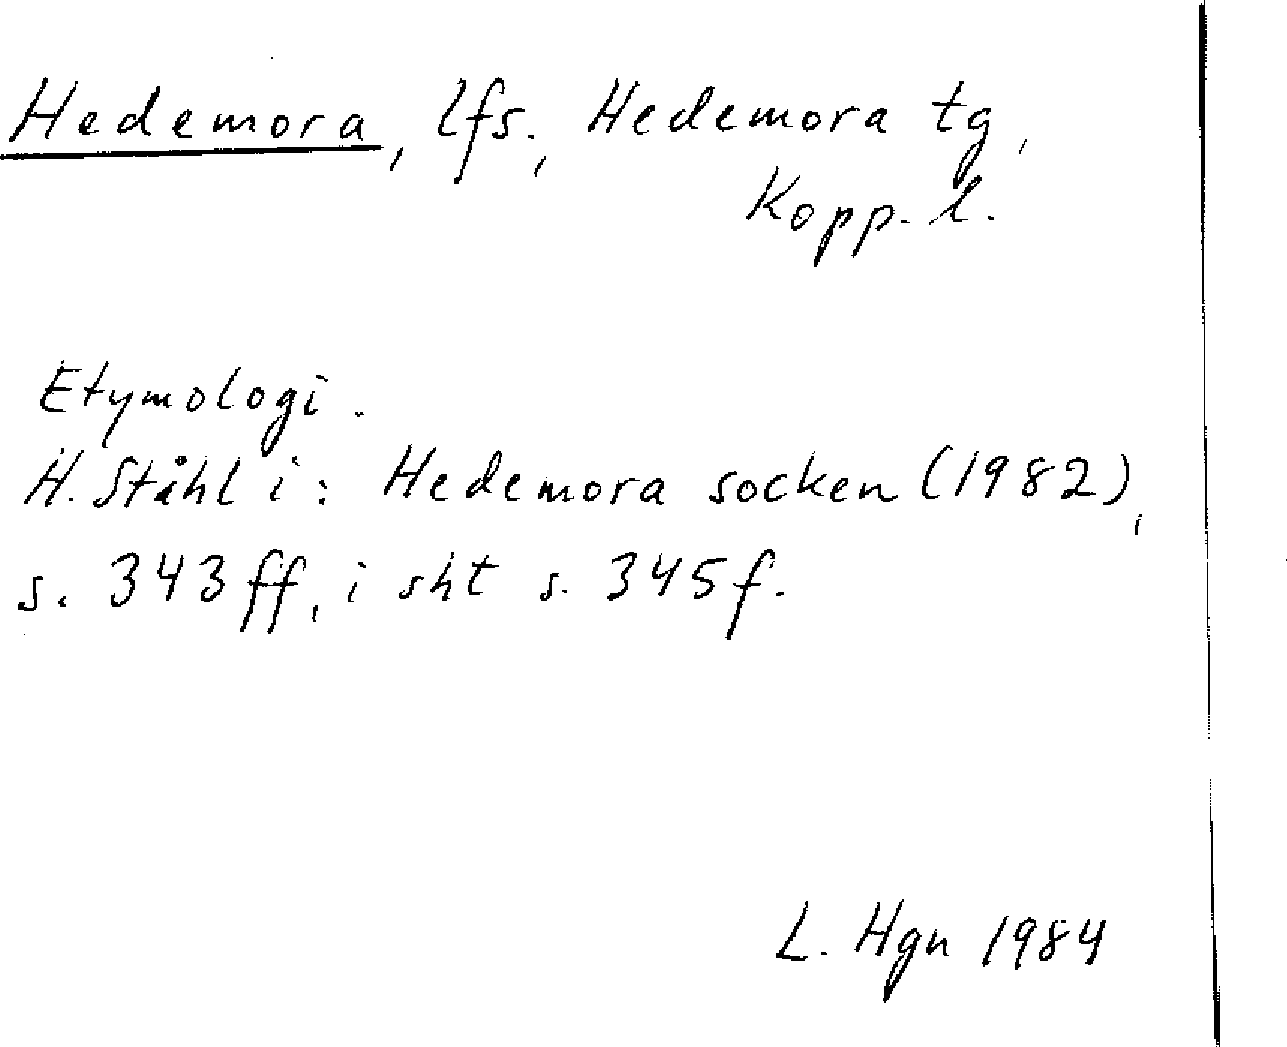 Hedemora, lfs., Hedemora tg,
Kopp. l.
Etymologi.
H. Ståhl i: Hedemora socken (1982),
s. 343 ff, i sht s. 345 f.
L. Hgn 1984